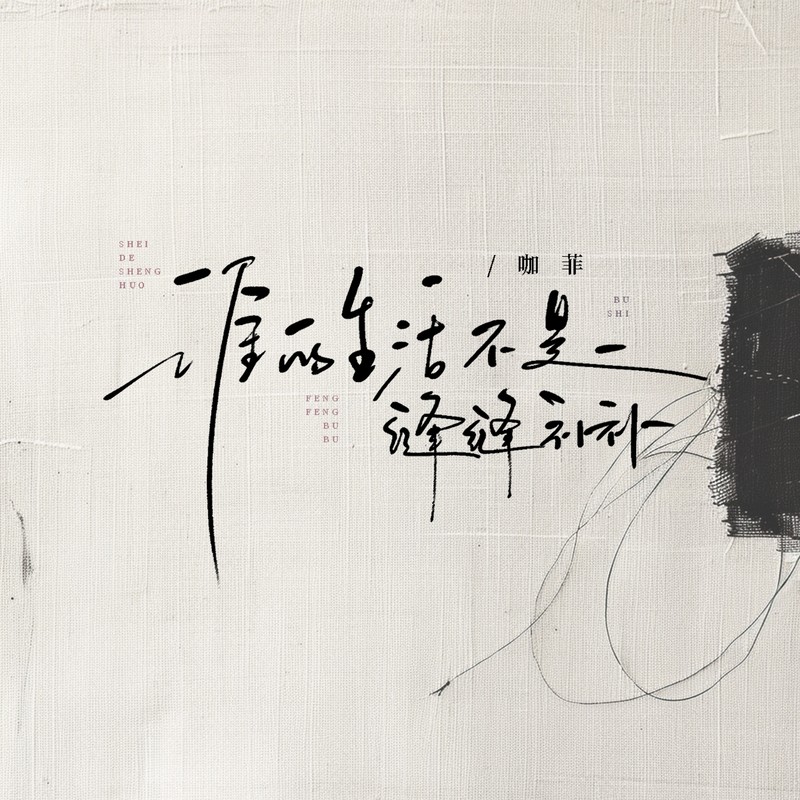 SHEI
DE
SHENG
HUO
/ 咖菲
谁的生活不是
BU
SHI
FENG
FENG
BU
BU
缝缝补补